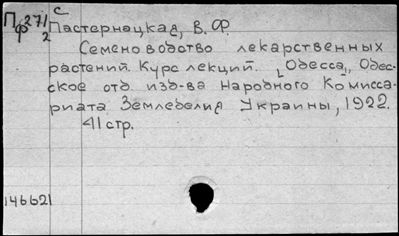 П 271 с
ф 2 Пастернацкая, В. Ф.
Семеноводство лекарственных
растений. Курс лекций. Одесса, Одес-
ское отд изд-ва Народного Комисса-
риата Земледелия Украины, 1922.
41 стр.
146621